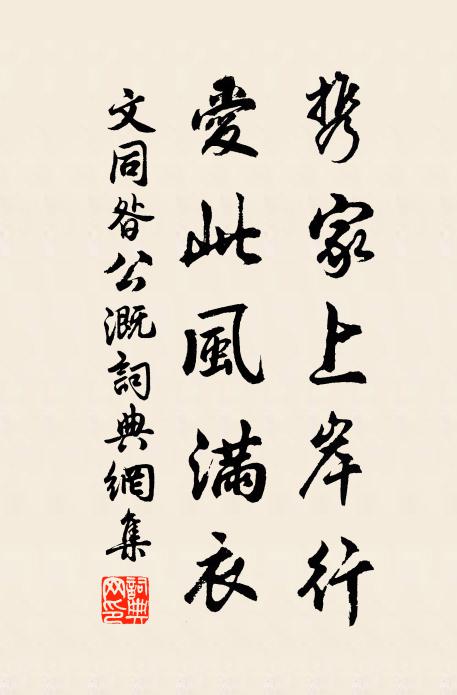 携家上岸行
愛此風滿衣
文同昝公溉詞典網集
詞典網印